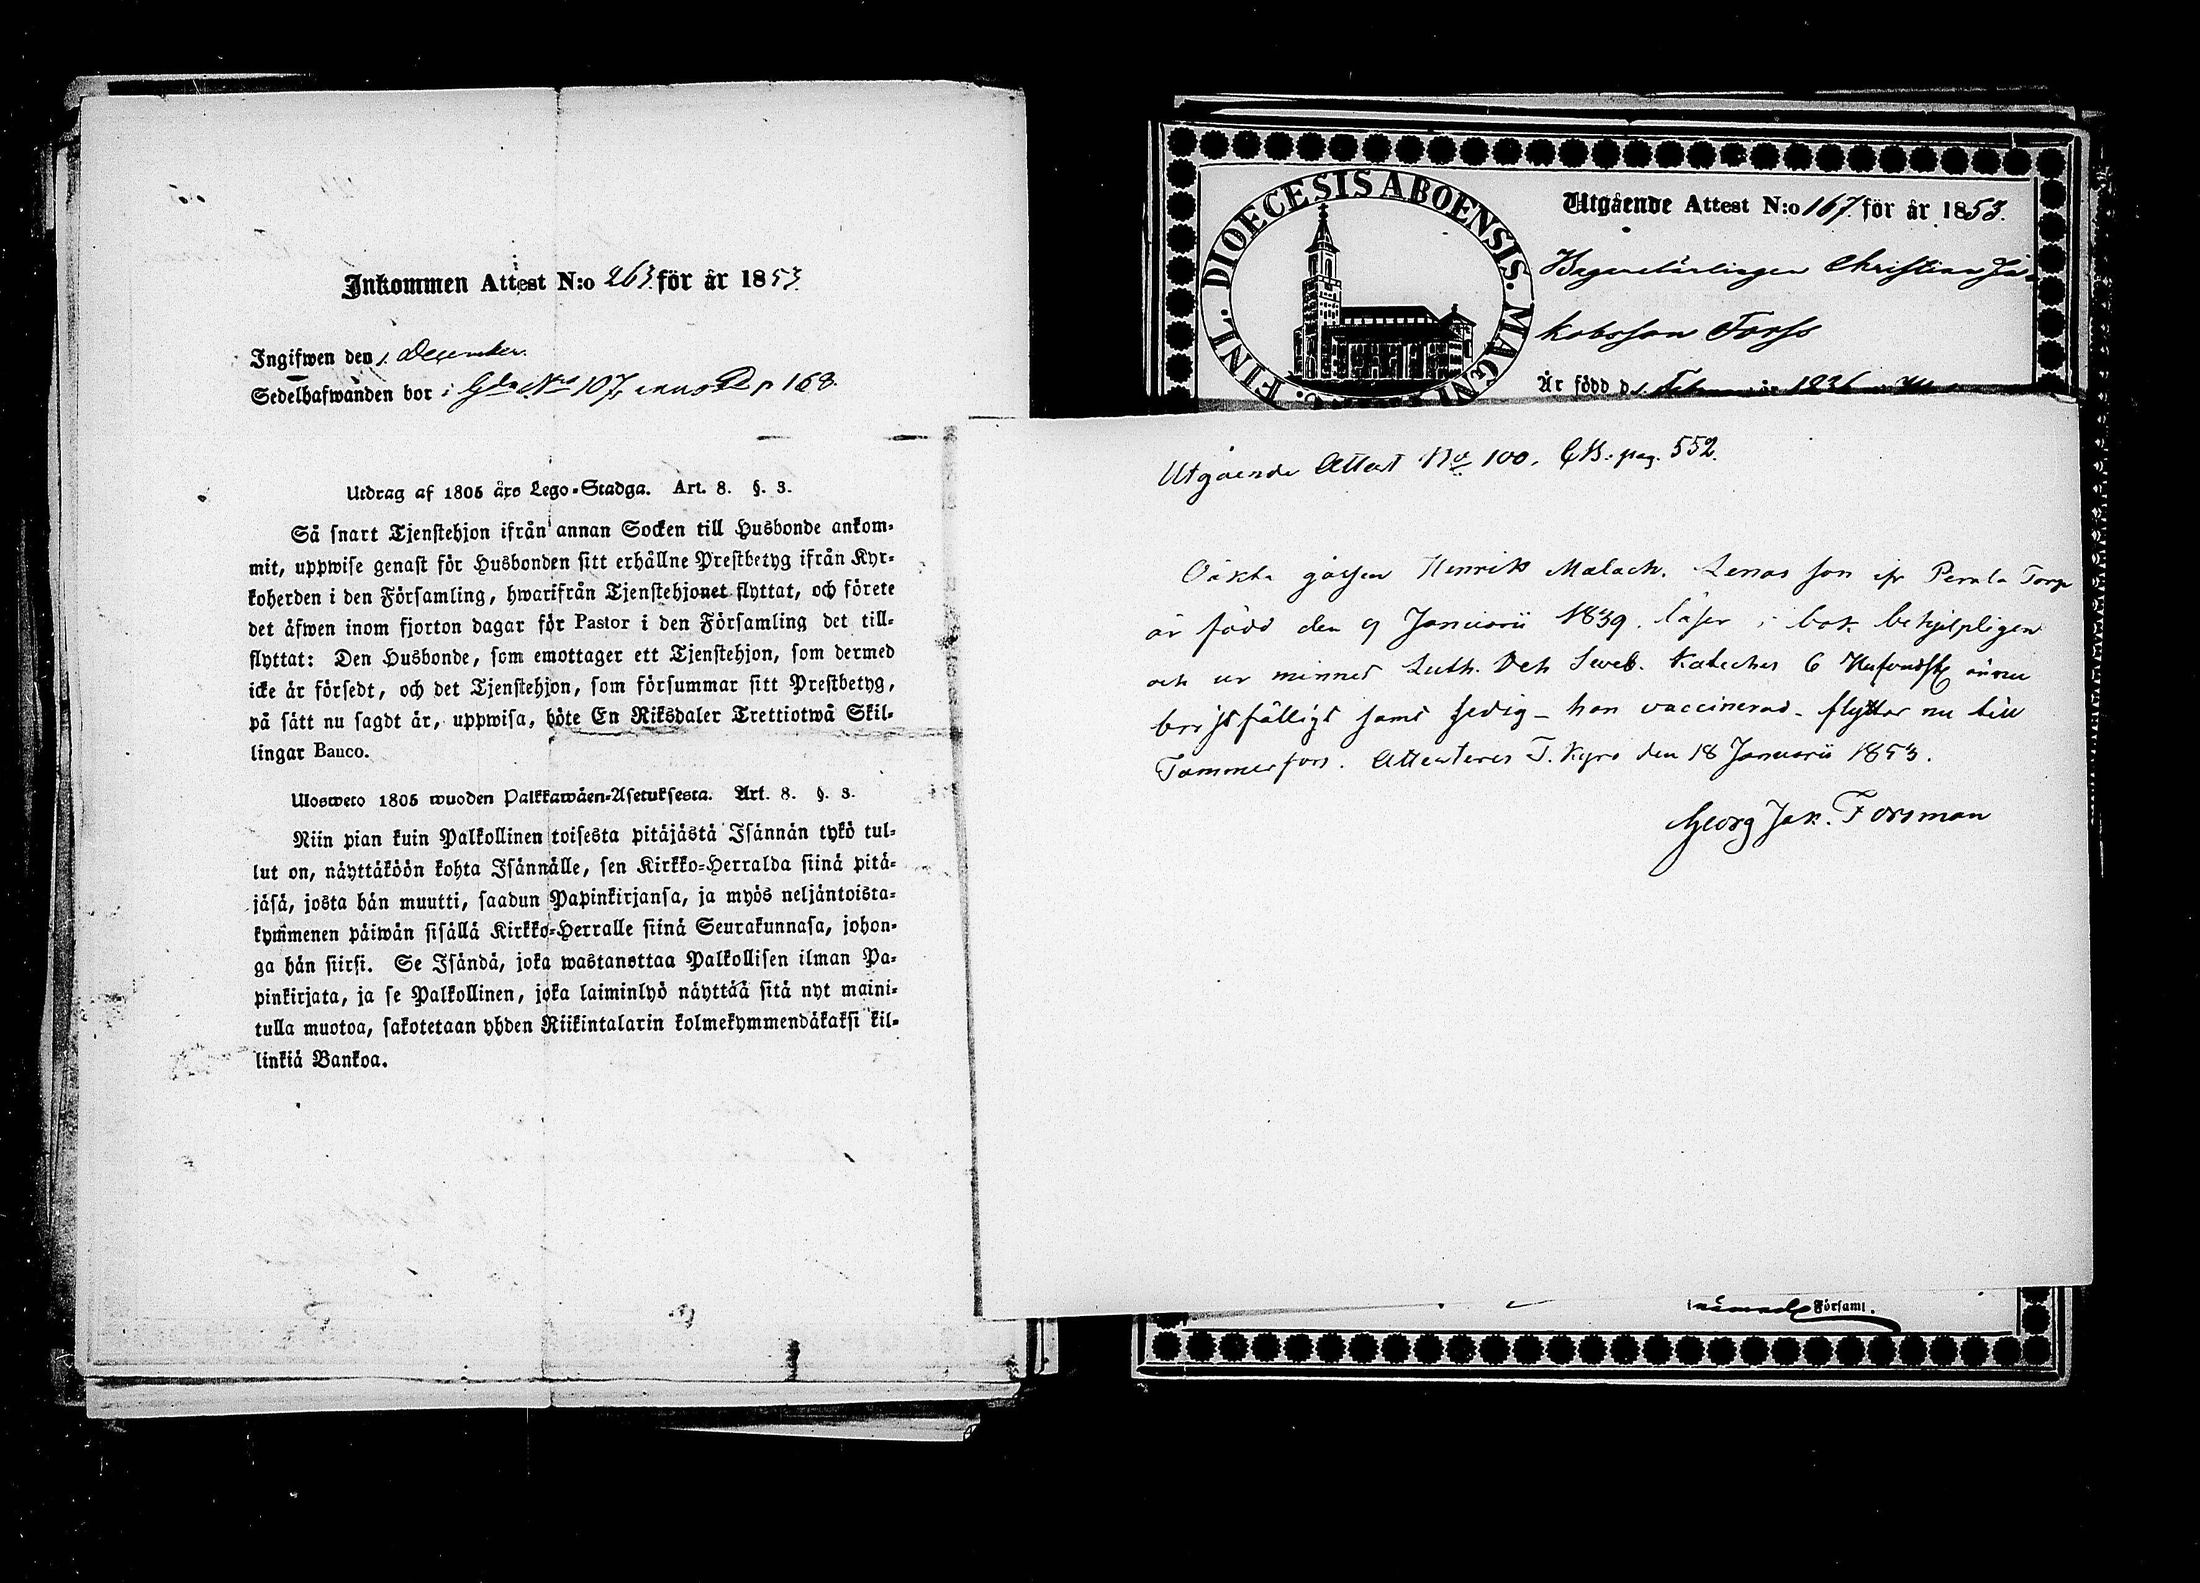 Inkommen Attest N:o 263. för år 1853.
Ingifwen den 1. December.
Sedelhafwanden bor i Gdn No 107, p 168.
Utdrag af 1805 års Lego-Stadga. Art. 8. §. 3.
Så snart Tjenstehjon ifrån annan Socken till Husbonde ankom-
mit, uppwise genast för Husbonden sitt erhållne Prestbetyg ifrån Kyr-
koherden i den Församling, hwarifrån Tjenstehjonet flyttat, och förete
det äfwen inom fjorton dagar för Pastor i den Församling det till-
flyttat: Den Husbonde, som emottager ett Tjenstehjon, som dermed
icke är försedt, och det Tjenstehjon, som försummar sitt Prestbetyg,
på sätt nu sagdt är, uppwisa, böte En Riksdaler Trettiotwå Skil-
lingar Banco.
Ulosweto 1805 wuoden Palkkawäen-Asetuksesta. Art. 8. §. 3.
Niin pian kuin Palkollinen toisesta pitäjästä Isännän tykö tul-
lut on, näyttäköön kohta Isännälle, sen Kirkko-Herralda siinä pitä-
jäsä, josta hän muutti, saadun Papinkirjansa, ja myös neljäntoista-
kymmenen päiwän sisällä Kirkko-Herralle siinä Seurakunnasa, johon-
ga hän siirsi. Se Isändä, joka wastanottaa Palkollisen ilman Pa-
pinkirjata, ja se Palkollinen, joka laiminlyö näyttää sitä nyt maini-
tulla muotoa, sakotetaan yhden Riikintalarin kolmekymmendäkaksi kil-
linkiä Bankoa.
FINL. DIOECESIS ABOENSIS. MAGNI
Utgående Attest N:o 167. för år 1853.
Bagarelärlingen Christian Ja-
kobsson Forss
Är född d. 1. Febr år 1836
Utgående Attest No 100. CB. pag. 552.
Oäkta gossen Henrik Malach. Lenas son ifr Perala Torp
är född den 9 Januarii 1839. läser i bok behjelpligen
och ur minnet Luth. Och Sveb. Kateches 6 Hufvudst ännu
bristfälligt samt sedig – han vaccinerad – flyttar nu till
Tammerfors. Attesteres T. Kyro den 18 Januarii 1853.
Georg Jak. Forsman
Församl.